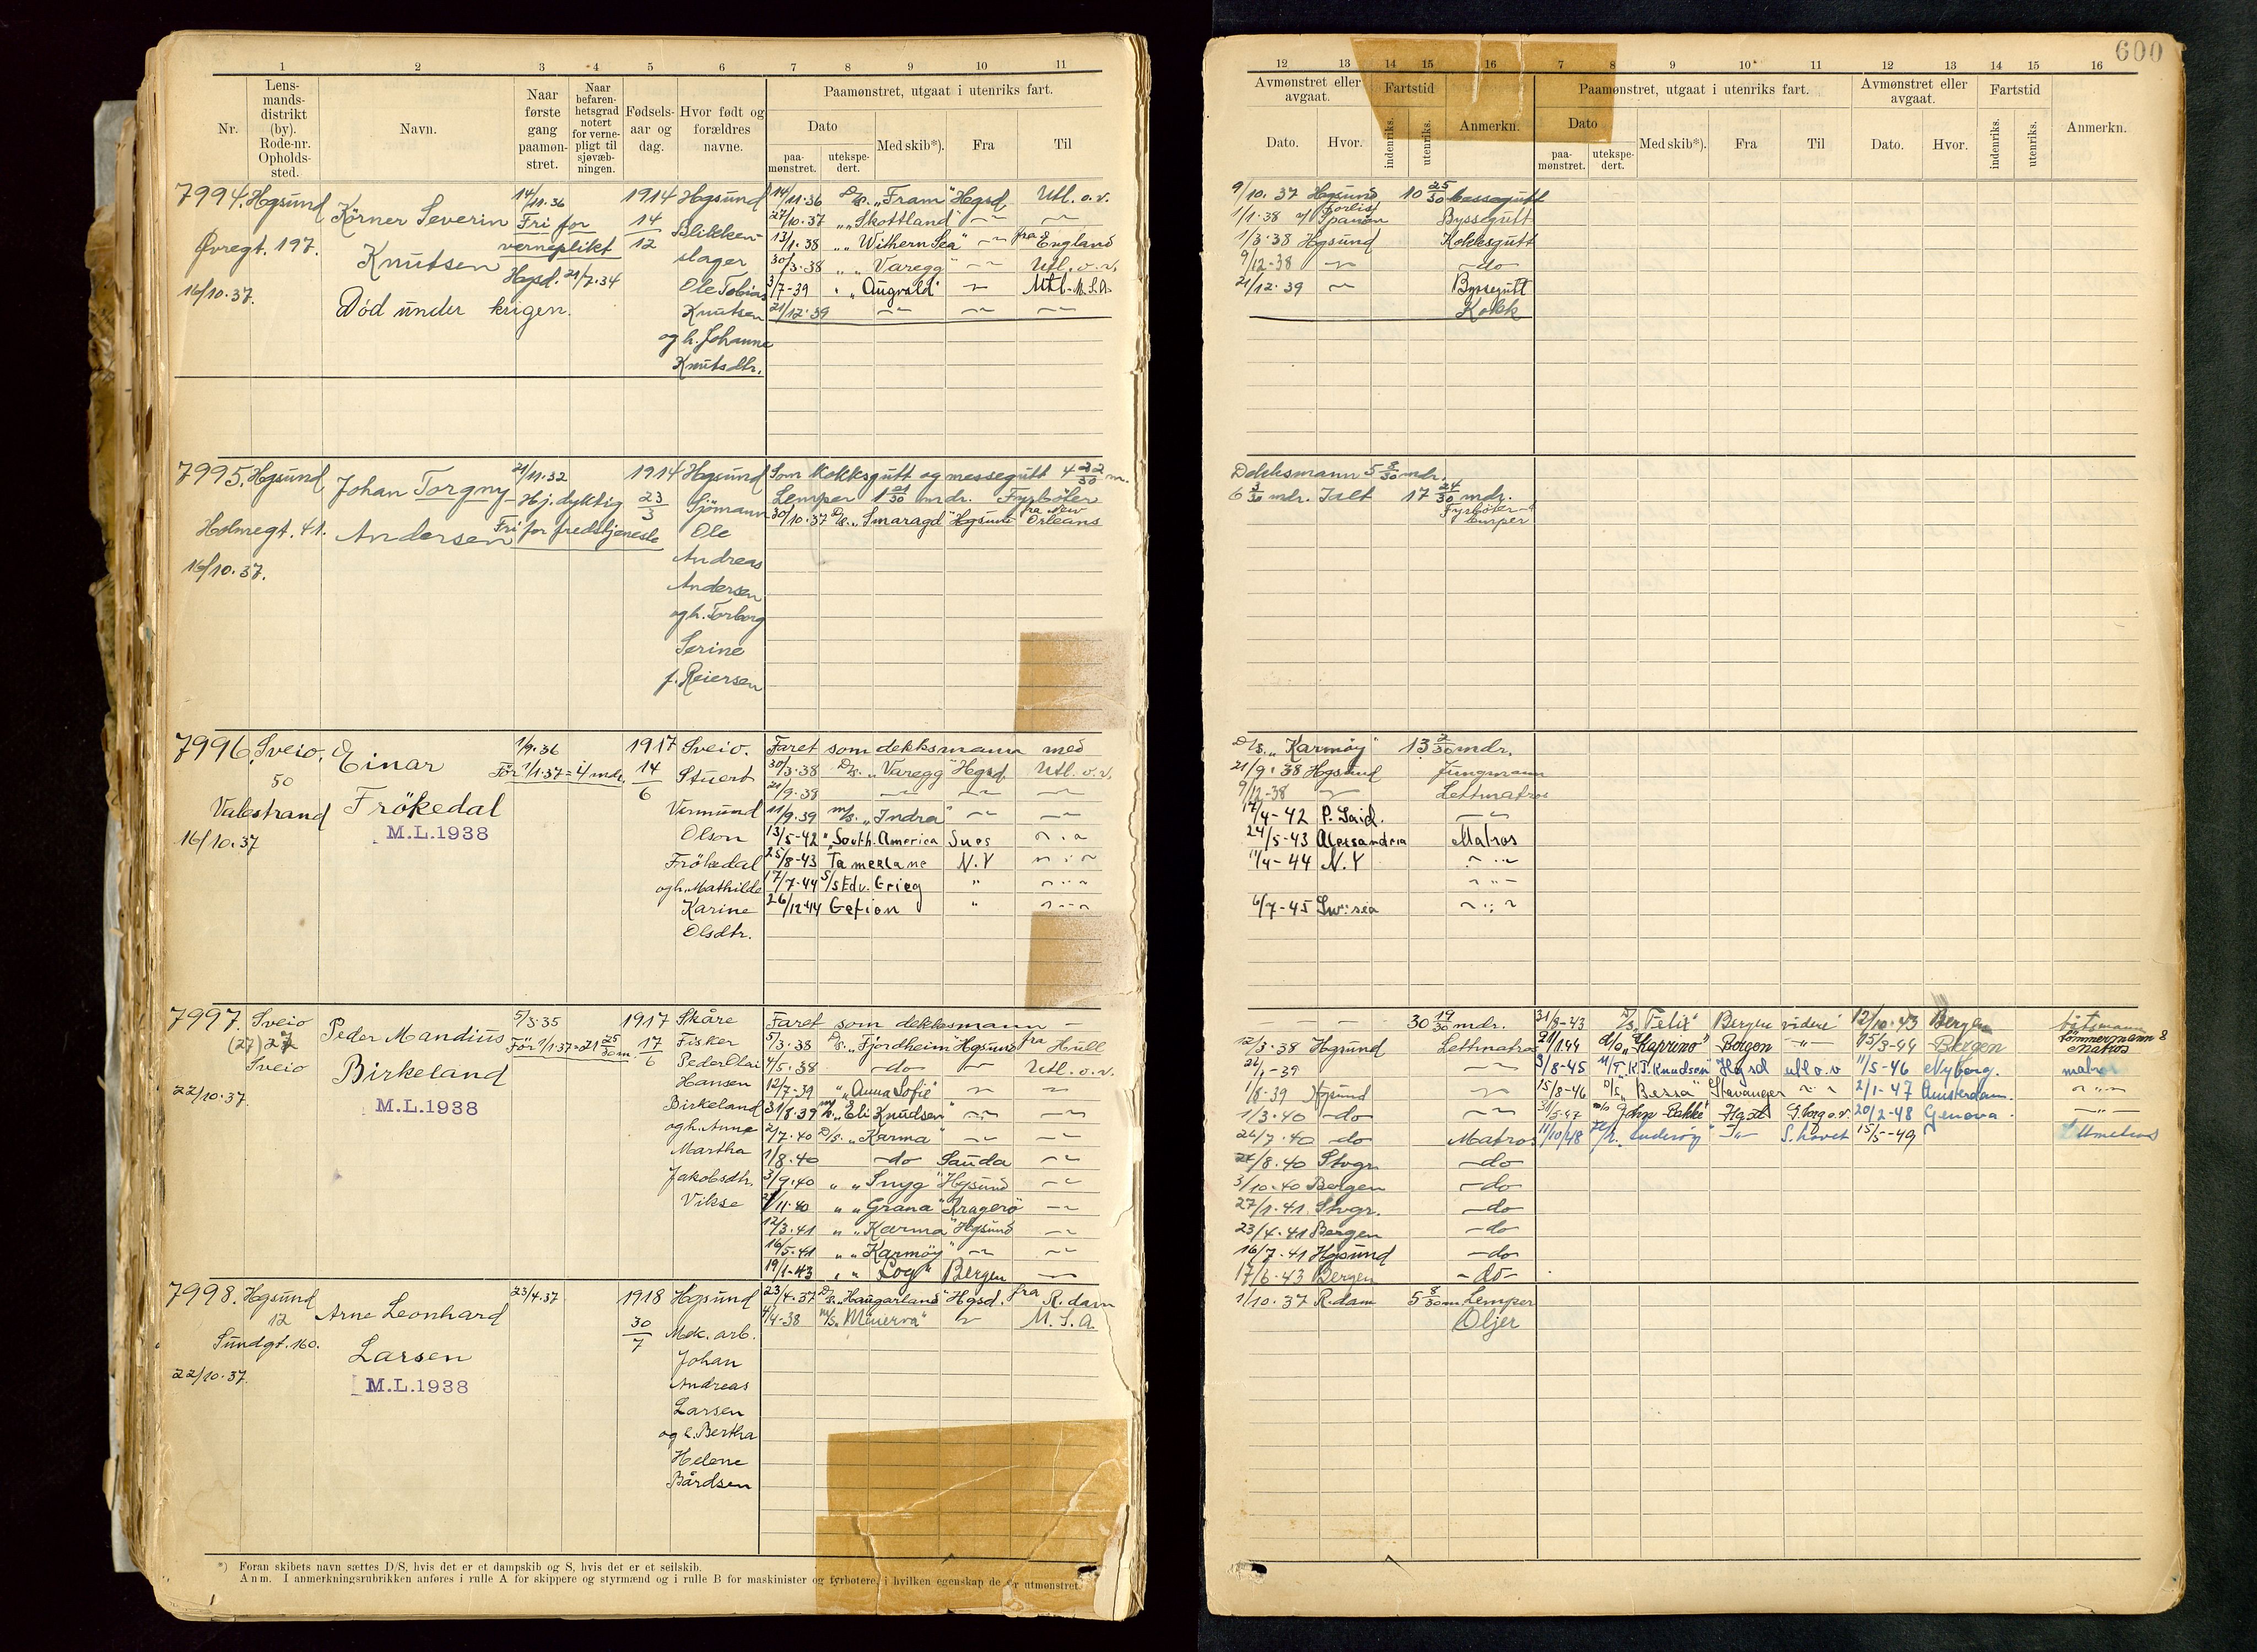 600
1 2 3 4 5 6 7 8 9 10 11
Nr.
Lens-
mands-
distrikt
(by).
Rode-nr.
Opholds-
sted.
Navn.
Naar
første
gang
paamøn-
stret.
Naar
befaren-
hetsgrad
notert
for verne-
pligt til
sjøvæb-
ningen.
Fødsels-
aar og
dag.
Hvor født og
forældres
navne.
Paamønstret, utgaat i utenriks fart.
Dato
paa-
mønstret.
utekspe-
dert.
Med skib*).
Fra
Til
7994. Hgsund Körner Severin 14/11.36 1914 Hgsund 14/11.36 D/s. „Fram" Hgsd Utl. o. v.
Øvregt. 197. Knutsen Fri for 14/12 Blikken- 27/10.37 „ „Skottland"
verneplikt slager 13/1.38 „ „Withern Sea" fra England
Hgsd. 24/7.34 30/3.38 „ „Varegg" Utl. o. v.
16/10.37. Ole Tobias 3/7-39 „ „Augvald" Utl. U.S.A.
Död under krigen. Knutsen 21/12.39
og h. Johanne
Knutsdtr.
7995. Hgsund Johan Torgny 21/11.32 1914 Hgsund Som kokksgutt og messegutt 4 22/30 m.
Holmegt. 41. Andersen Hj. dyktig 23/3 Sjömann Lemper 1 21/30 mdr. Fyrböter
Fri for fredstjeneste Ole 30/10.37 D/s. „Smaragd" Hgsund fra New Orleans
16/10.37. Andreas
Andersen
og h. Torborg
Serine
f. Reiersen
7996. Sveio. Einar 1/9.36 1917 Sveio. Faret som dekksmann med
50 För 1/1.37 = 4 mdr. 14/6 Stuert 30/3.38 D/s. „Varegg" Hgsd. Utl. o. v.
Valestrand Frökedal Vermund 21/9.38
M.L.1938 Olson 11/9.39 m/s. „Indra"
16/10.37 Frökedal 13/5-42 " South. America Sues
og h. Mathilde 25/8-43 Tamerlane N.Y
Karine 17/7-44 S/s Edv. Grieg "
Olsdtr. 26/12-44 Gefion "
7997. Sveio Peder Mandius 5/3.35 1917 Skåre Faret som dekksmann
(27) Birkeland För 1/1.37 = 21 25/30 m. 17/6 Fisker 5/3.38 D/s. „Fjordheim" Hgsund fra Hull
Sveio M.L.1938 Peder Elai 4/5.38 do Utl. o. v.
22/10.37. Hansen 12/7-39 „Anna Sofie"
Birkeland 31/8.39 m/s. „Eli Knudsen"
og h. Anne 2/7.40 D/s. „Karma"
Martha 1/8.40 do Sauda
Jakobsdtr. 3/9.40 „ „Snyg" Hgsund
Vikse 2/11.40 „ „Grana" Kragerö
12/3.41 „ „Karma" Hgsund
16/5.41 „ „Karmöy"
19/1-43 „ „Log" Bergen
7998. Hgsund Arne Leonhard 23/4.37 1918 Hgsund 23/4.37 D/s. „Haugarland" Hgsd. fra R.dam
12 Larsen 30/7 Mek. arb. 4/4-38 m/s. „Minerva" U.S.A.
Sundgt. 160. M.L.1938 Johan
22/10.37. Andreas
Larsen
og h. Bertha
Helene
Bårdsen
*) Foran skibets navn sættes D/S, hvis det er et dampskib og S, hvis det er et seilskib.
Anm. I anmerkningsrubrikken anføres i rulle A for skippere og styrmænd og i rulle B for maskinister og fyrbøtere, i hvilken egenskap de er utmønstret.
12 13 14 15 16 7 8 9 10 11 12 13 14 15 16
Avmønstret eller
avgaat.
Dato. Hvor.
Fartstid
indenriks. utenriks.
Anmerkn.
Paamønstret, utgaat i utenriks fart.
Dato
paa-
mønstret.
utekspe-
dert.
Med skib*). Fra Til
Avmønstret eller
avgaat.
Dato. Hvor.
Fartstid
indenriks. utenriks.
Anmerkn.
9/10.37 Hgsund 10 25/30 Messegutt
1/1.38 v/ Spanien Forlist Byssegutt
1/3.38 Hgsund Kokksgutt
9/12-38 do
21/12.39 Byssegutt
Kokk
Dekksmann 5 8/30 mdr.
6 3/30 mdr. Ialt 17 24/30 mdr.
Fyrböter
lemper
D/s. „Karmöy" 13 2/30 mdr.
21/9.38 Hgsund Jungmann
9/12-38 Lettmatros
17/4-42 P. Said.
24/5-43 Alessandria Matros
11/4-44 N.Y
6/7-45 Sw: sea
30 19/30 mdr. 31/8-43 D/s. „Felix" Bergen videre 12/10.43 Bergen båtsmann
12/3.38 Hgsund Lettmatros 21/1.44 D/s „Kapruno" Bergen 15/3-44 Bergen tömmermann & Matros
26/1-39 3/8-45 M/T „K.J. Knudsen" Hgsd utl o.v 11/5-46 Nyborg. matros
1/8.39 Hgsund 15/8-46 D/s „Bersa" Stavanger 2/1-47 Amsterdam.
1/3.40 do 31/5-47 m/s „John Bakke" Hgsd G.borg o.v. 20/2-48 Genova
26/7.40 do Matros 11/10/48 „Suderöy" S. havet 15/5-49
24/8.40 Stvgr. do
3/10.40 Bergen do
27/1.41. Stvgr. do
23/4.41 Bergen do
16/7.41 Hgsund do
17/6.43 Bergen do
1/10.37 R.dam 5 8/30 m. Lemper
Oljer